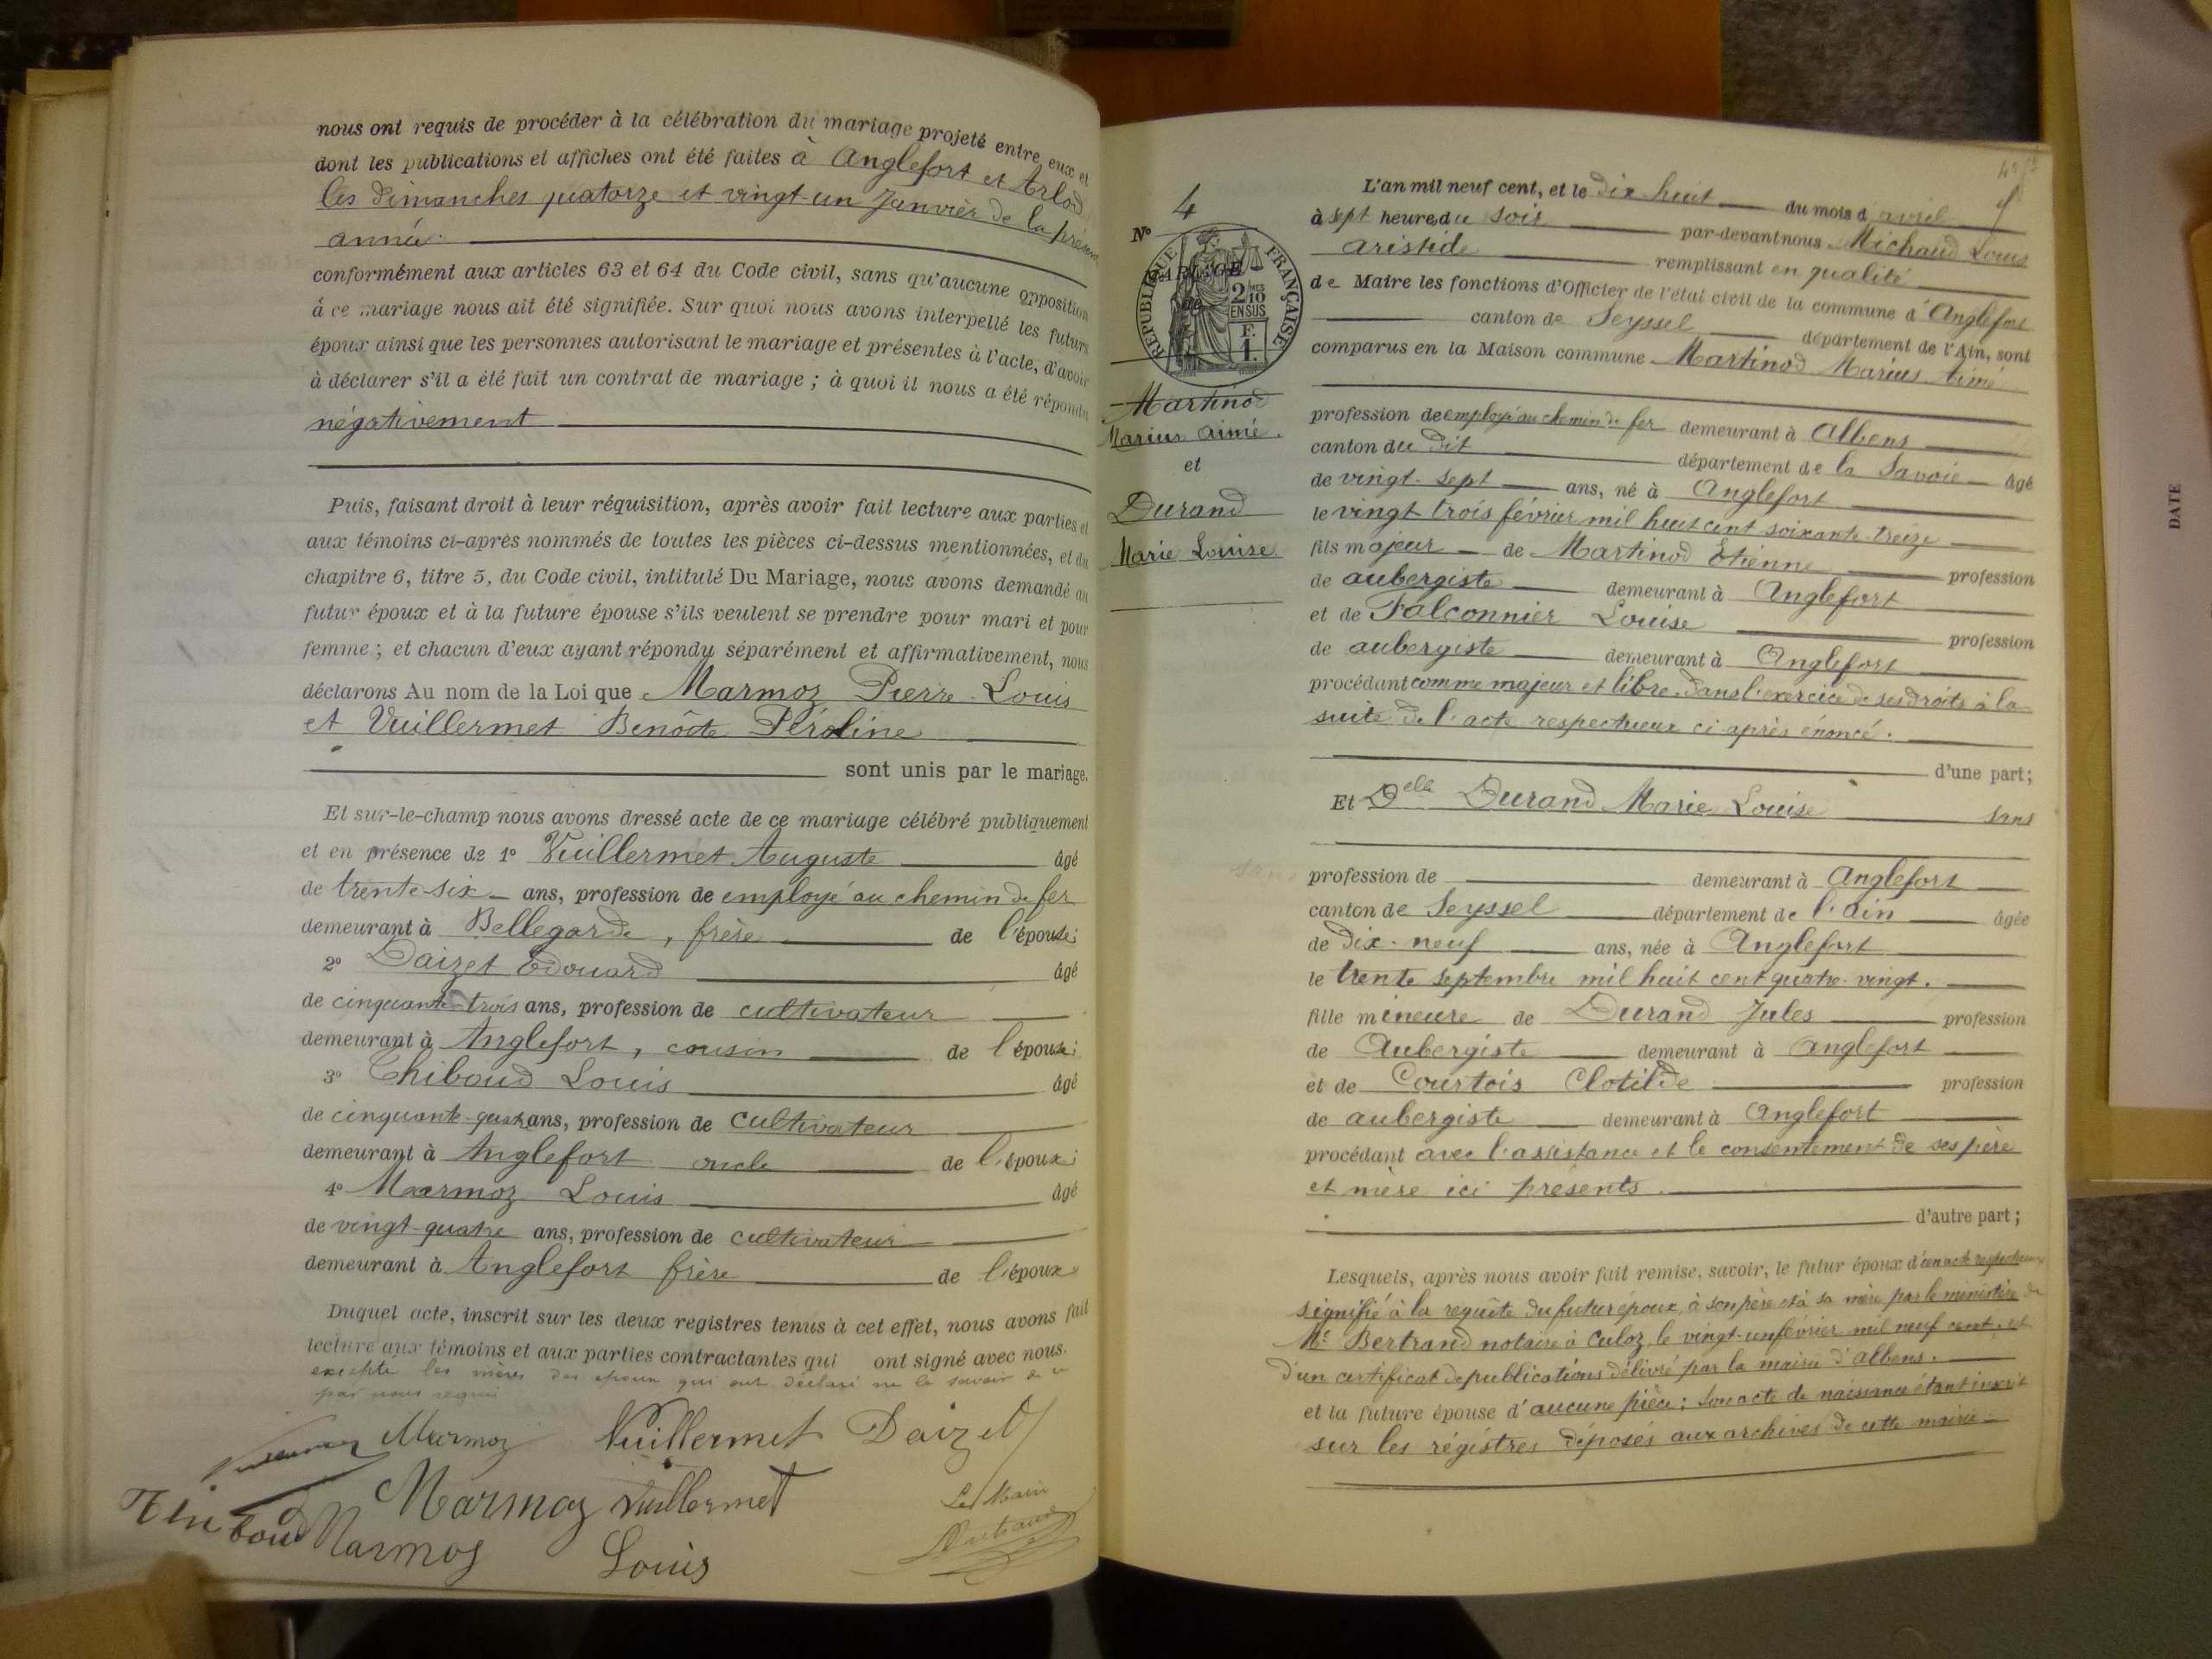 nous ont requis de procéder à la célébration du mariage projeté entre eux et
dont les publications et affiches ont été faites à Anglefort et Arlod
les dimanches quatorze et vingt-un Janvier de la présente
année.
conformément aux articles 63 et 64 du Code civil, sans qu'aucune opposition
à ce mariage nous ait été signifiée. Sur quoi nous avons interpellé les futurs
époux ainsi que les personnes autorisant le mariage et présentes à l'acte, d'avoir
à déclarer s'il a été fait un contrat de mariage ; à quoi il nous a été répondu
négativement
Puis, faisant droit à leur réquisition, après avoir fait lecture aux parties et
aux témoins ci-après nommés de toutes les pièces ci-dessus mentionnées, et du
chapitre 6, titre 5, du Code civil, intitulé Du Mariage, nous avons demandé au
futur époux et à la future épouse s'ils veulent se prendre pour mari et pour
femme ; et chacun d'eux ayant répondu séparément et affirmativement, nous
déclarons Au nom de la Loi que Marmoz Pierre Louis
et Vuillermet Benoîte Péroline
sont unis par le mariage.
Et sur-le-champ nous avons dressé acte de ce mariage célébré publiquement
et en présence de 1° Vuillermet Auguste âgé
de trente-six ans, profession de employé au chemin de fer
demeurant à Bellegarde, frère de l'épouse;
2° Daizet Edouard âgé
de cinquante-trois ans, profession de cultivateur
demeurant à Anglefort, cousin de l'épouse;
3° Thiboud Louis âgé
de cinquante-quatre ans, profession de cultivateur
demeurant à Anglefort oncle de l'époux;
4° Marmoz Louis âgé
de vingt-quatre ans, profession de cultivateur
demeurant à Anglefort frère de l'époux
Duquel acte, inscrit sur les deux registres tenus à cet effet, nous avons fait
lecture aux témoins et aux parties contractantes qui ont signé avec nous.
excepté les mères des époux qui ont déclaré ne le savoir de ce
par nous requis
Marmoz Vuillermet Daizet
Marmoz Vuillermet
Marmoz Louis
Le Maire
N° 4
MARIAGE
de
RÉPUBLIQUE FRANÇAISE
2 MES
10
EN SUS
F.
1.
Martinod
Marius Aimé.
et
Durand
Marie Louise
L'an mil neuf cent, et le dix huit du mois d'avril
à sept heures du soir par-devant nous Michaud Louis
Aristide remplissant en qualité
de Maire les fonctions d'Officier de l'état civil de la commune d'Anglefort
canton de Seyssel département de l'Ain, sont
comparus en la Maison commune Martinod Marius Aimé
profession de employé au chemin de fer demeurant à Albens
canton du dit département de la Savoie âgé
de vingt-sept ans, né à Anglefort
le vingt trois février mil huit cent soixante-treize
fils majeur de Martinod Etienne profession
de aubergiste demeurant à Anglefort
et de Falconnier Louise profession
de aubergiste demeurant à Anglefort
procédant comme majeur et libre dans l'exercice de ses droits à la
suite de l'acte respectueux ci après énoncé.
d'une part;
Et Delle Durand Marie Louise sans
profession de demeurant à Anglefort
canton de Seyssel département de l'Ain âgée
de dix-neuf ans, née à Anglefort
le trente septembre mil huit cent quatre-vingt.
fille mineure de Durand Jules profession
de Aubergiste demeurant à Anglefort
et de Courtois Clotilde profession
de aubergiste demeurant à Anglefort
procédant avec l'assistance et le consentement de ses père
et mère ici présents.
d'autre part;
Lesquels, après nous avoir fait remise, savoir, le futur époux d'un acte respectueux
signifié à la requête du futur époux, à son père et à sa mère par le ministère de
Me Bertrand notaire à Culoz, le vingt-un février mil neuf cent. et
d'un certificat de publications délivré par la mairie d'Albens.
et la future épouse d'aucune pièce; son acte de naissance étant inscrit
sur les régistres déposés aux archives de cette mairie
DATE